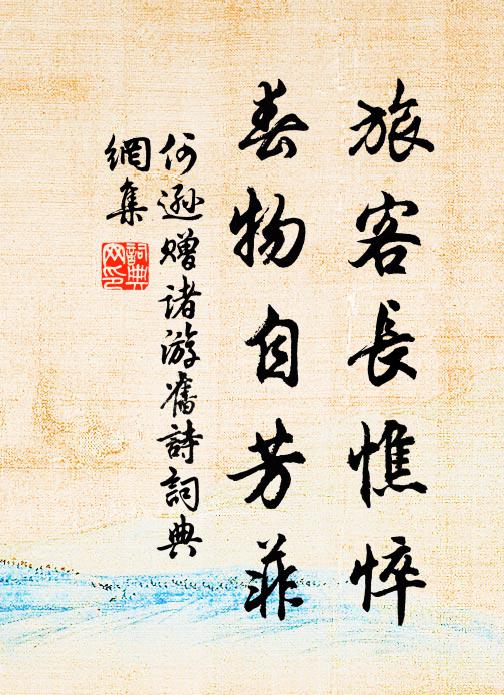 旅客長憔悴
春物自芳菲
何遜贈诸游舊詩詞典
網集
詞典
网印